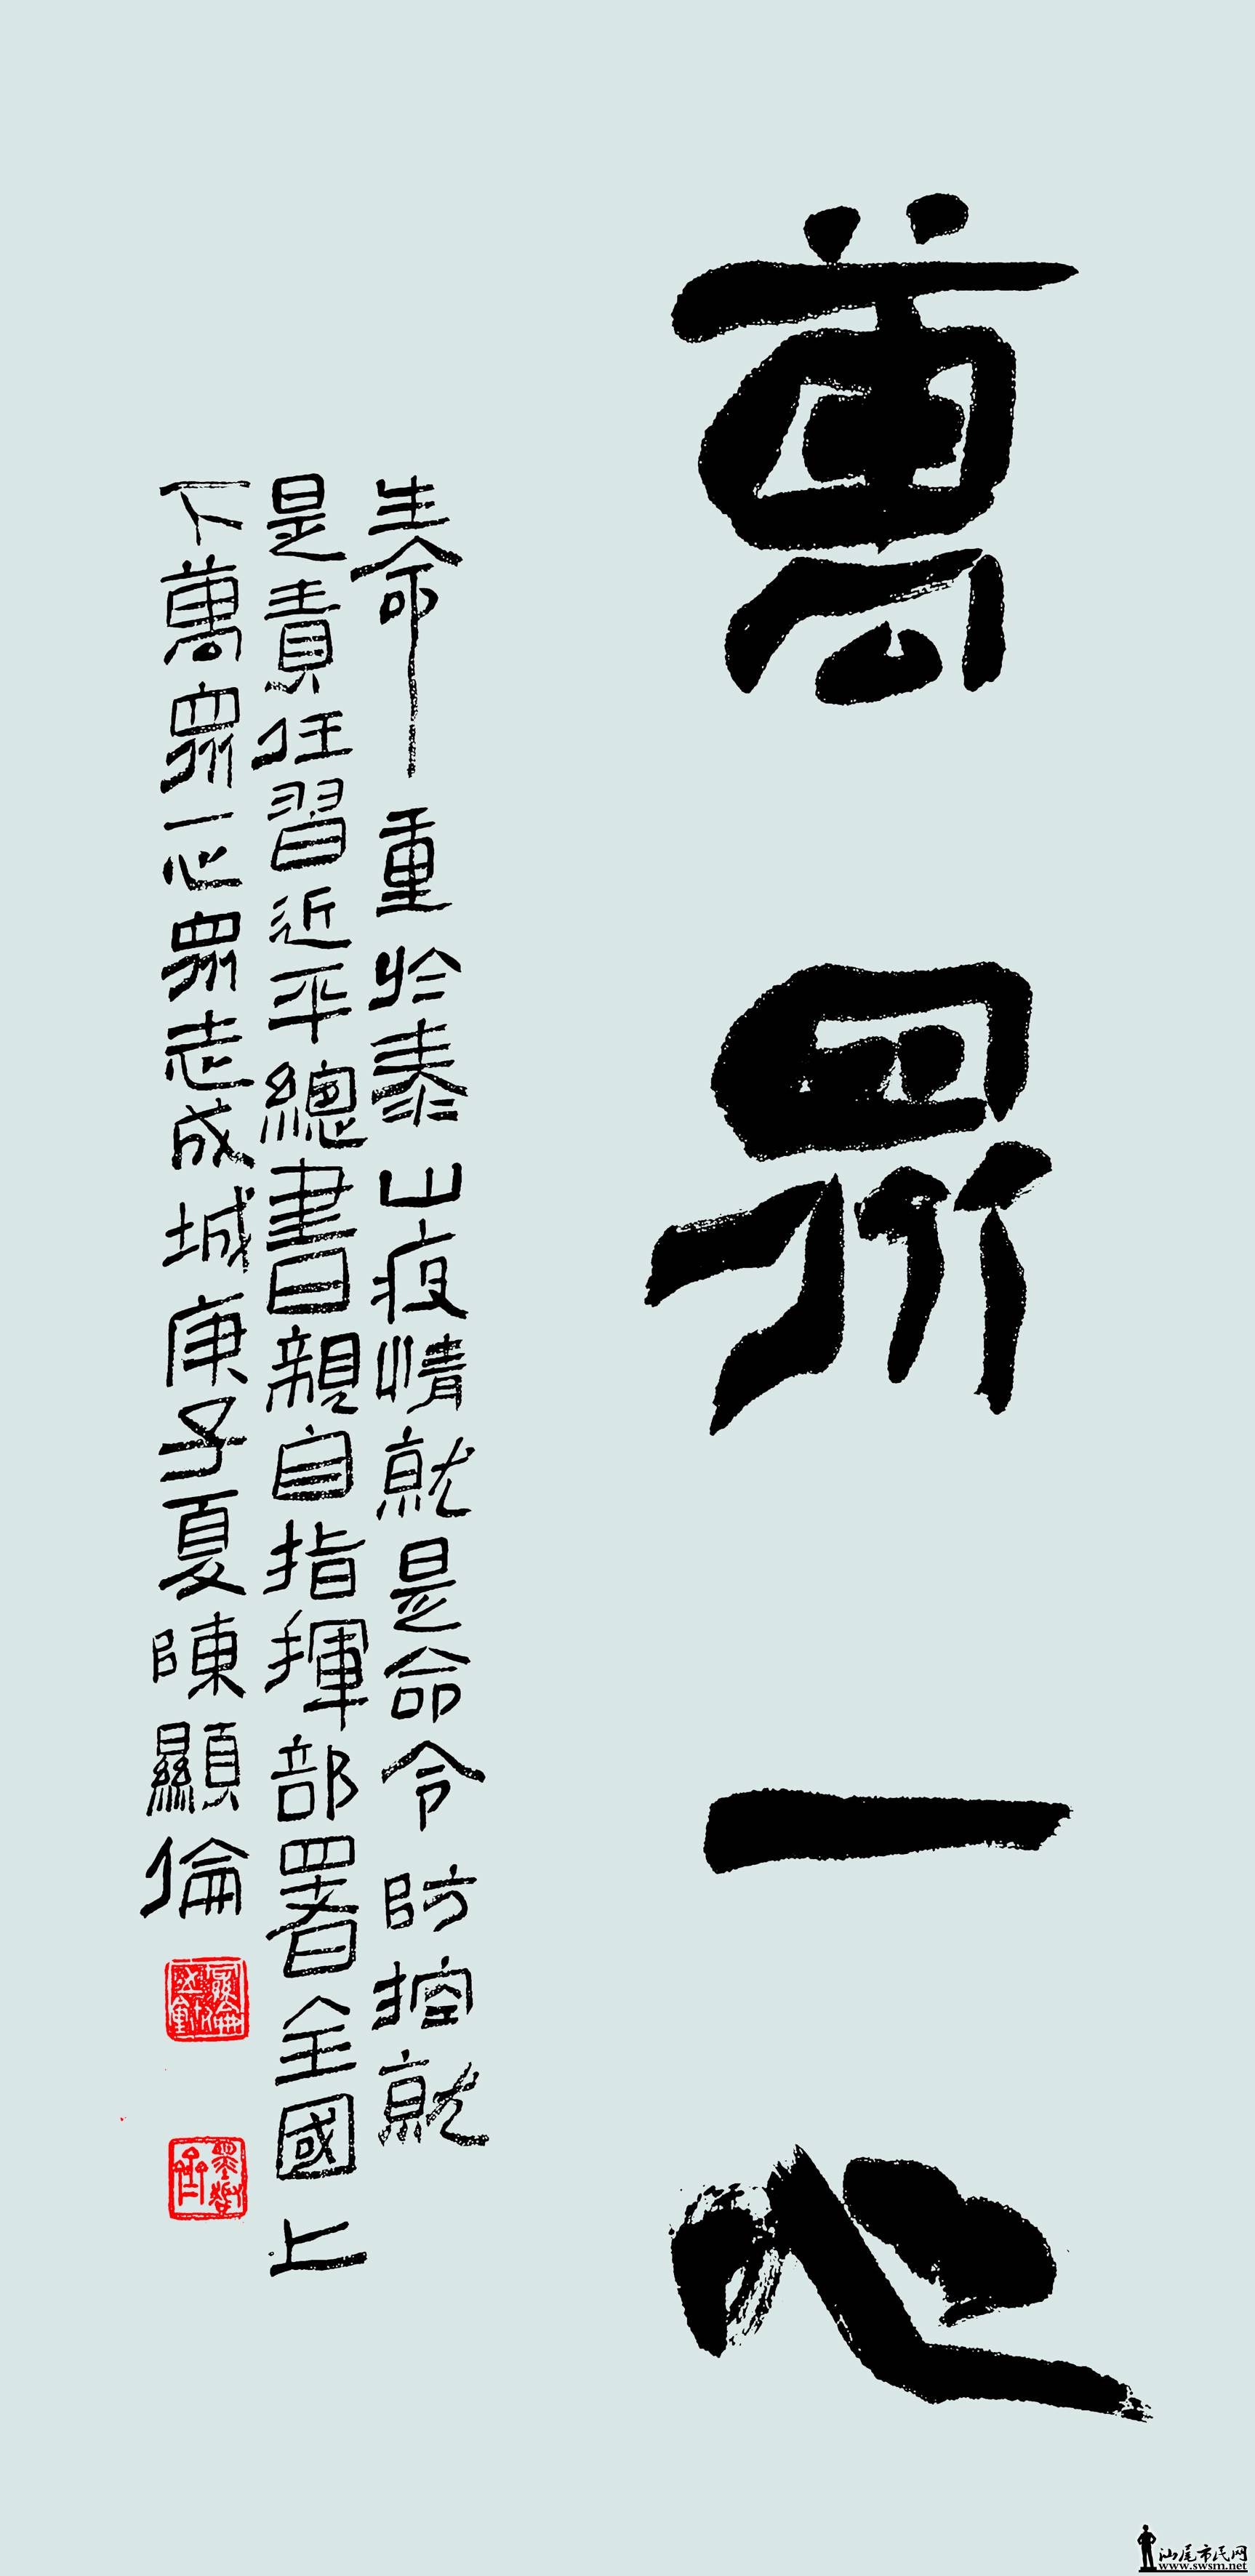 萬眾一心
生命重於泰山疫情就是命令防控就
是責任習近平總書記親自指揮部署全國上
下萬眾一心眾志成城庚子夏陳顯倫
汕尾市民网
www.swsm.net